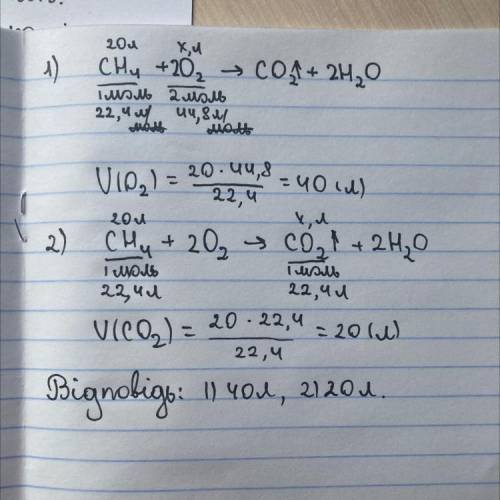 20л x,л
1) CH₄ + 2O₂ → CO₂↑ + 2H₂O
1моль 2моль
22,4л/моль 44,8л/моль
V(O₂) = 20 · 44,8 / 22,4 = 40 (л)
20л x,л
2) CH₄ + 2O₂ → CO₂↑ + 2H₂O
1моль 1моль
22,4л 22,4л
V(CO₂) = 20 · 22,4 / 22,4 = 20 (л)
Відповідь: 1) 40л, 2) 20л.